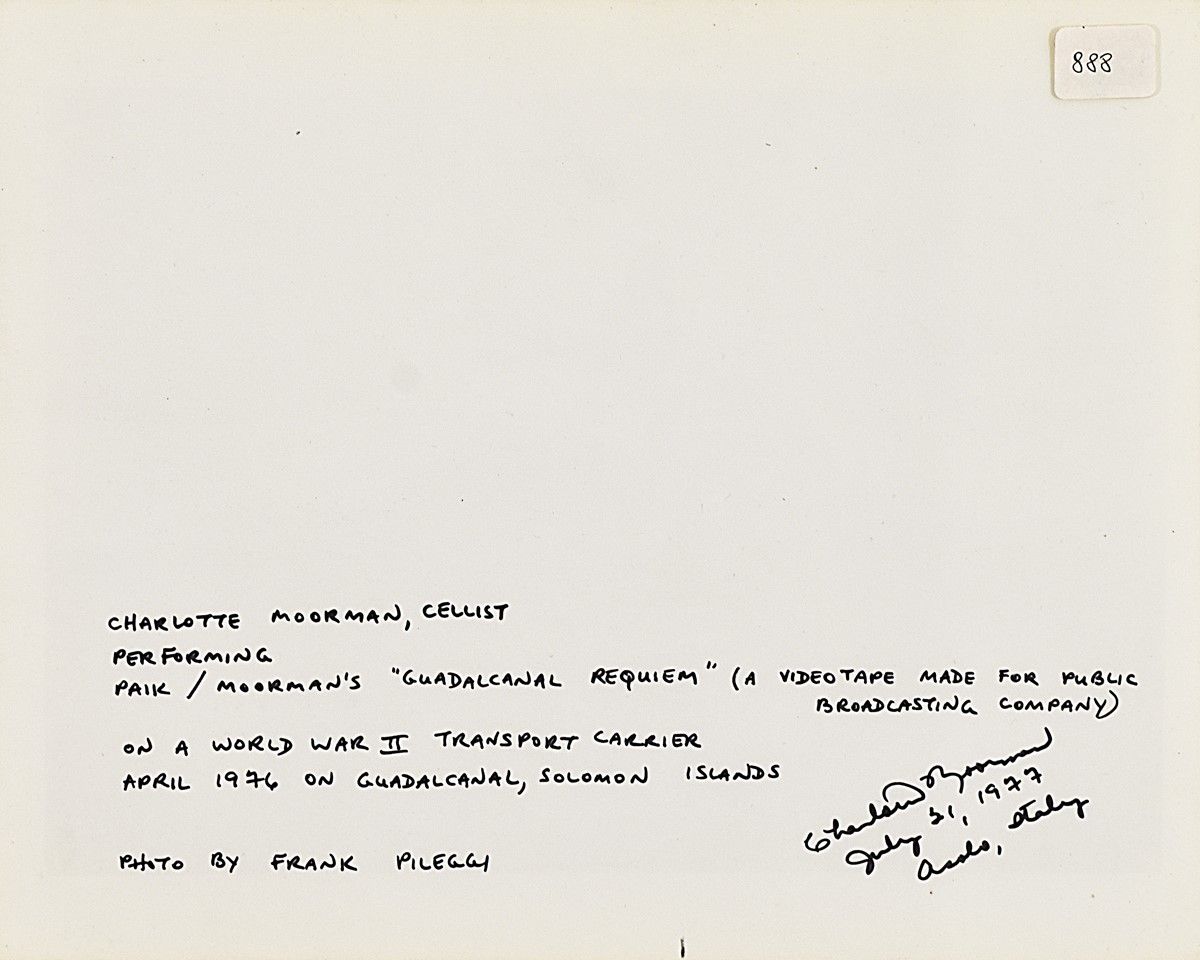 888
CHARLOTTE MOORMAN, CELLIST
PERFORMING
PAIK / MOORMAN'S "GUADALCANAL REQUIEM" (A VIDEOTAPE MADE FOR PUBLIC
BROADCASTING COMPANY)
ON A WORLD WAR II TRANSPORT CARRIER
APRIL 1976 ON GUADALCANAL, SOLOMON ISLANDS
Charlotte Moorman
July 31, 1977
Asolo, Italy
PHOTO BY FRANK PILEGGI